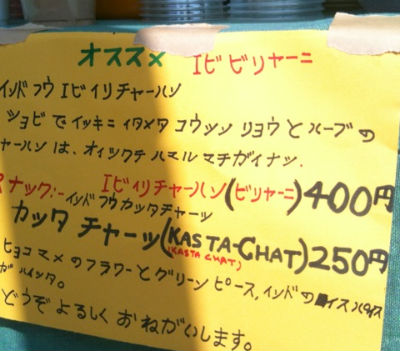 オススメ　エビビリヤーニ
インドフウエビイリチャーハン
ショビでイッキニイタメタコウッシンリョウとハーブの
チャーハンは、オイックテハマルマチガイナッ.
スナック:- エビイリチャーハン(ビリヤーニ)400円
インドフウカッタチャーッ
カッタ チャーッ(KASTA-CHAT)250円
(KASTA CHAT)
ヒヨコマメのフラワーとグリーンピース,インドのスパイス
がハイッタ。
どうぞよろしくおねがいします。